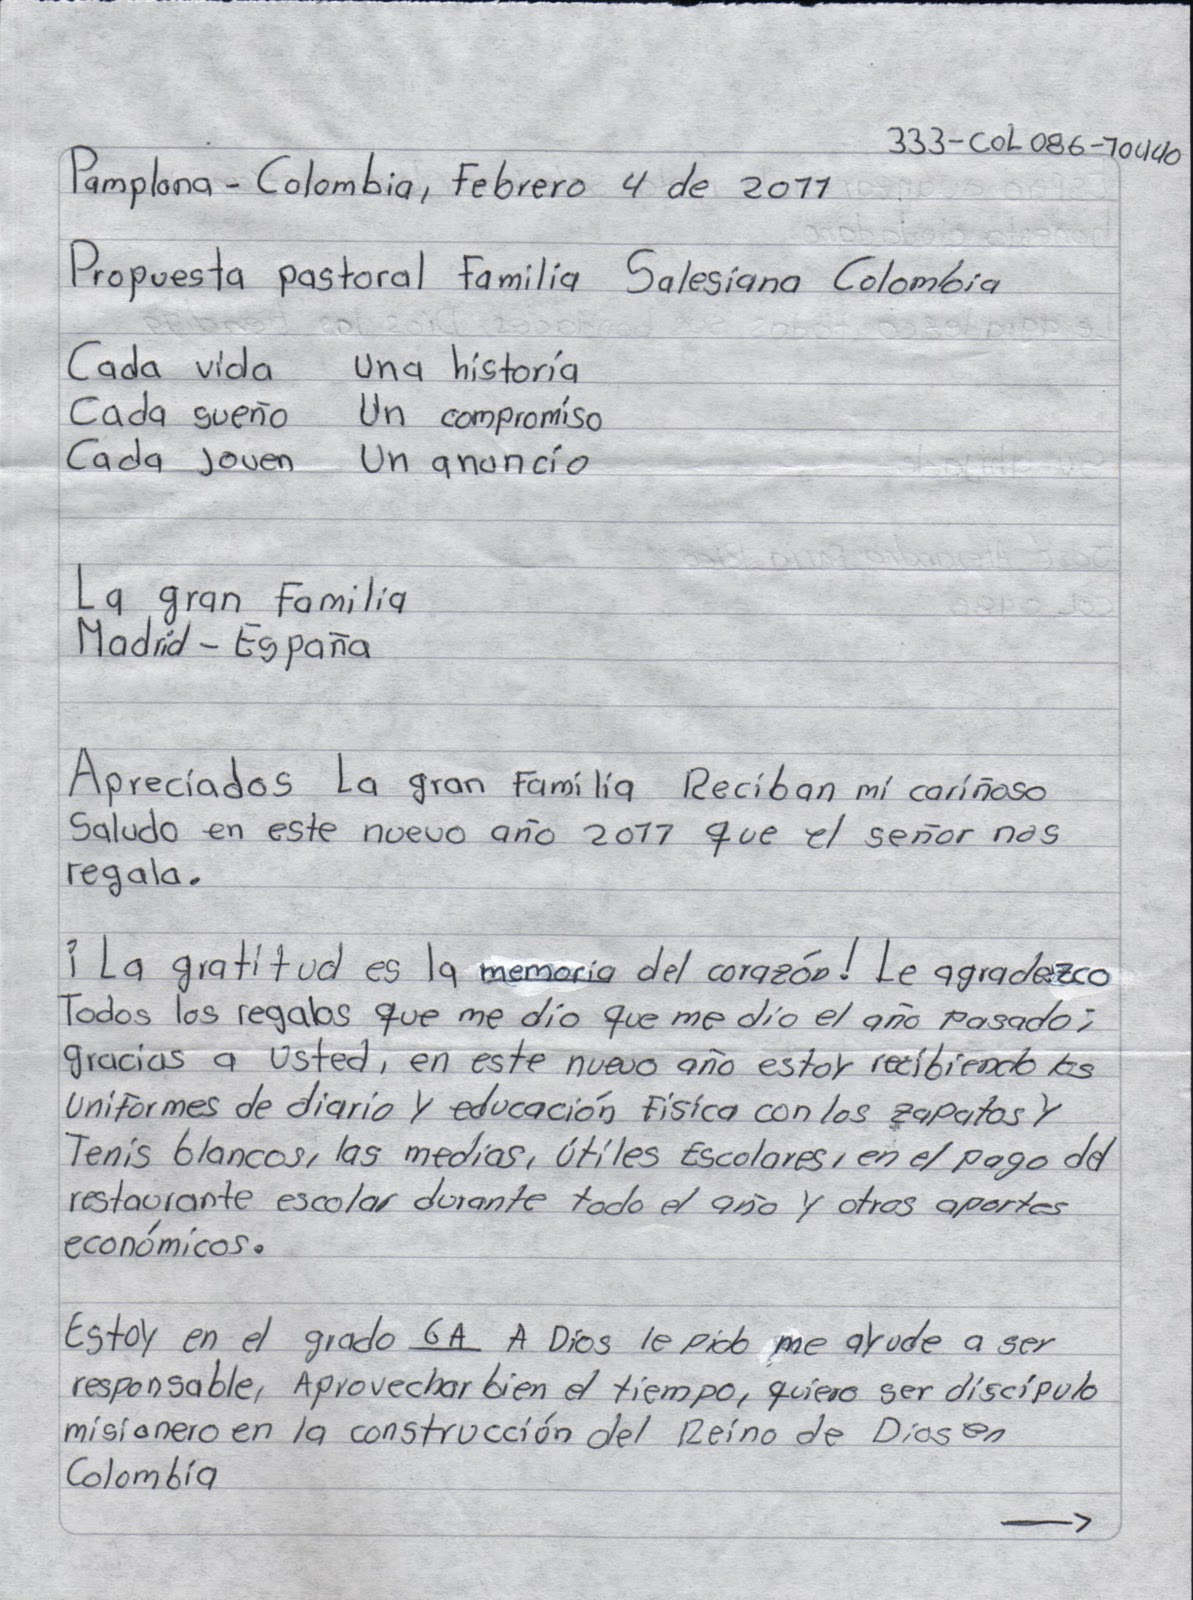 333-COL 086-10440
Pamplona - Colombia, Febrero 4 de 2011
Propuesta pastoral Familia Salesiana Colombia
Cada vida una historia
Cada sueño Un compromiso
Cada joven Un anuncio
La gran Familia
Madrid - España
Apreciados La gran Familia Reciban mi cariñoso
Saludo en este nuevo año 2011 que el señor nos
regala.
¡La gratitud es la memoria del corazón! Le agradezco
Todos los regalos que me dio que me dio el año pasado;
gracias a Usted, en este nuevo año estoy recibiendo los
Uniformes de diario y educación Fisica con los zapatos y
Tenis blancos, las medias, útiles Escolares, en el pago del
restaurante escolar durante todo el año y otros aportes
económicos.
Estoy en el grado 6A A Dios le pido me ayude a ser
responsable, Aprovechar bien el tiempo, quiero ser discípulo
misionero en la construcción del Reino de Dios en
Colombia